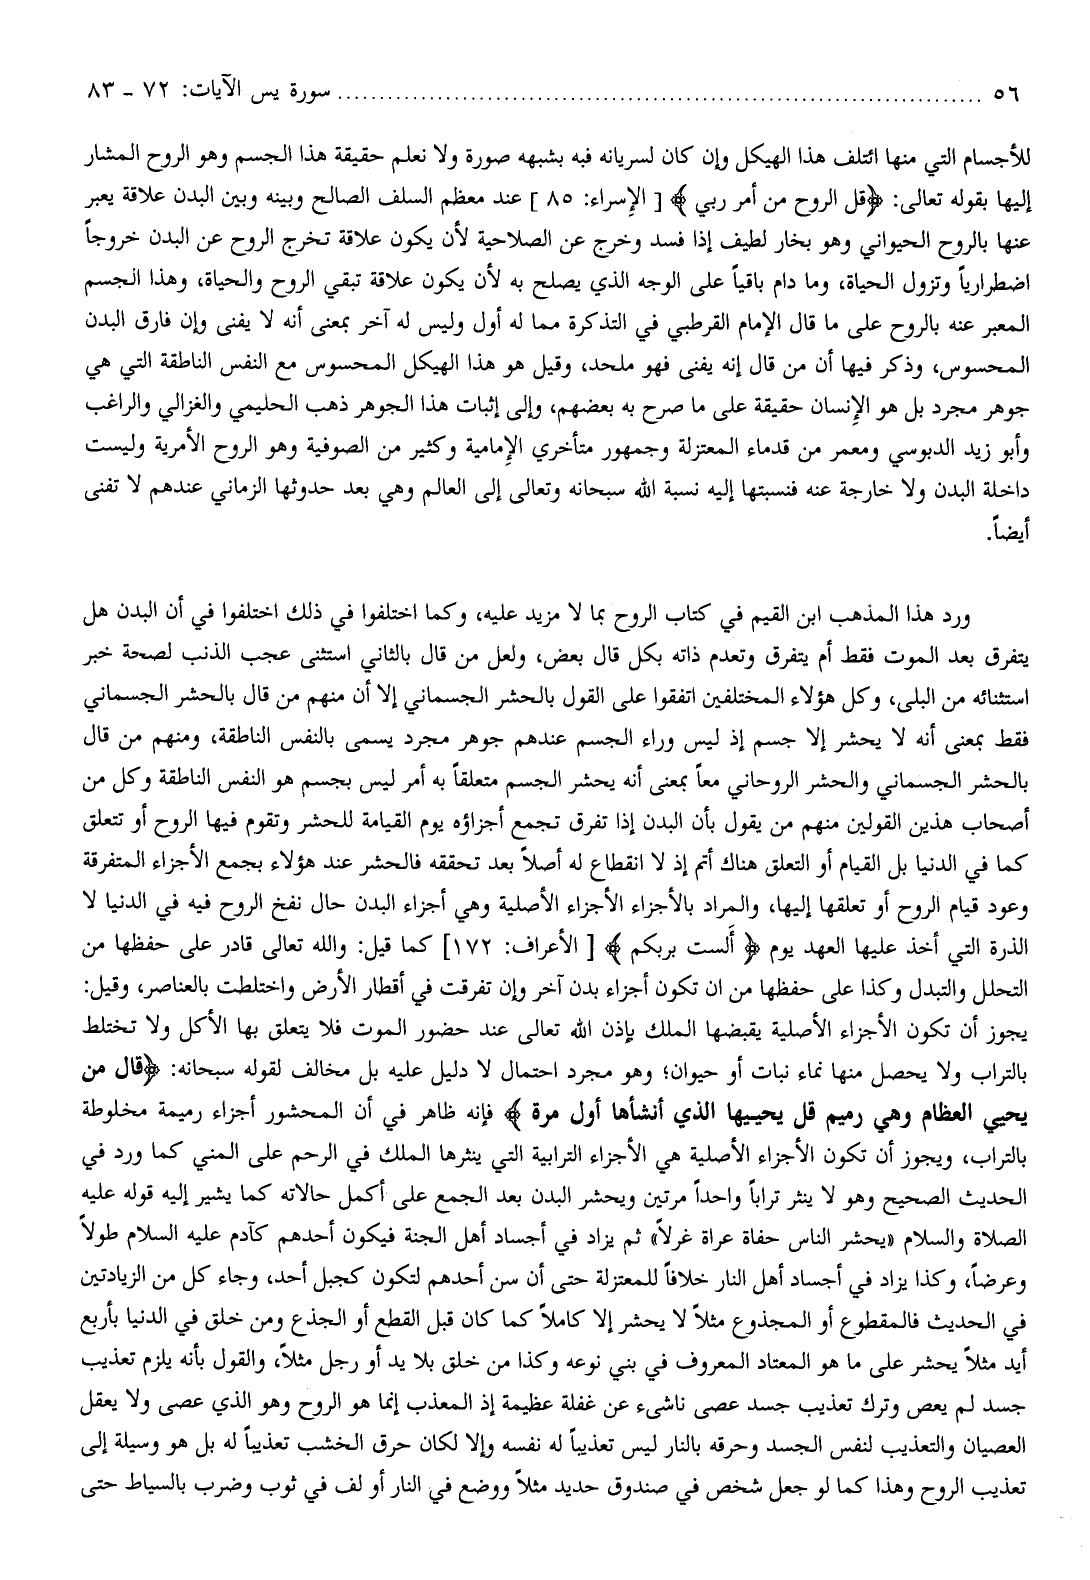 ٥٦ ........................................................ سورة يس الآيات: ٧٢ - ٨٣
للأجسام التي منها ائتلف هذا الهيكل وإن كان لسريانه فيه بشبهه صورة ولا نعلم حقيقة هذا الجسم وهو الروح المشار
إليها بقوله تعالى: ﴿قل الروح من أمر ربي﴾ [الإسراء: ٨٥] عند معظم السلف الصالح وبينه وبين البدن علاقة يعبر
عنها بالروح الحيواني وهو بخار لطيف إذا فسد وخرج عن الصلاحية لأن يكون علاقة تخرج الروح عن البدن خروجاً
اضطرارياً وتزول الحياة، وما دام باقياً على الوجه الذي يصلح به لأن يكون علاقة تبقي الروح والحياة، وهذا الجسم
المعبر عنه بالروح على ما قال الإمام القرطبي في التذكرة مما له أول وليس له آخر بمعنى أنه لا يفنى وإن فارق البدن
المحسوس، وذكر فيها أن من قال إنه يفنى فهو ملحد، وقيل هو هذا الهيكل المحسوس مع النفس الناطقة التي هي
جوهر مجرد بل هو الإنسان حقيقة على ما صرح به بعضهم، وإلى إثبات هذا الجوهر ذهب الحليمي والغزالي والراغب
وأبو زيد الدبوسي ومعمر من قدماء المعتزلة وجمهور متأخري الإمامية وكثير من الصوفية وهو الروح الأمرية وليست
داخلة البدن ولا خارجة عنه فنسبتها إليه نسبة الله سبحانه وتعالى إلى العالم وهي بعد حدوثها الزماني عندهم لا تفنى
أيضاً.
ورد هذا المذهب ابن القيم في كتاب الروح بما لا مزيد عليه، وكما اختلفوا في ذلك اختلفوا في أن البدن هل
يتفرق بعد الموت فقط أم يتفرق وتعدم ذاته بكل قال بعض، ولعل من قال بالثاني استثنى عجب الذنب لصحة خبر
استثنائه من البلى، وكل هؤلاء المختلفين اتفقوا على القول بالحشر الجسماني إلا أن منهم من قال بالحشر الجسماني
فقط بمعنى أنه لا يحشر إلا جسم إذ ليس وراء الجسم عندهم جوهر مجرد يسمى بالنفس الناطقة، ومنهم من قال
بالحشر الجسماني والحشر الروحاني معاً بمعنى أنه يحشر الجسم متعلقاً به أمر ليس بجسم هو النفس الناطقة وكل من
أصحاب هذين القولين منهم من يقول بأن البدن إذا تفرق تجمع أجزاؤه يوم القيامة للحشر وتقوم فيها الروح أو تتعلق
كما في الدنيا بل القيام أو التعلق هناك أتم إذ لا انقطاع له أصلاً بعد تحققه فالحشر عند هؤلاء بجمع الأجزاء المتفرقة
وعود قيام الروح أو تعلقها إليها، والمراد بالأجزاء الأجزاء الأصلية وهي أجزاء البدن حال نفخ الروح فيه في الدنيا لا
الذرة التي أخذ عليها العهد يوم ﴿أَلست بربكم﴾ [الأعراف: ١٧٢] كما قيل: والله تعالى قادر على حفظها من
التحلل والتبدل وكذا على حفظها من ان تكون أجزاء بدن آخر وإن تفرقت في أقطار الأرض واختلطت بالعناصر، وقيل:
يجوز أن تكون الأجزاء الأصلية يقبضها الملك بإذن الله تعالى عند حضور الموت فلا يتعلق بها الأكل ولا تختلط
بالتراب ولا يحصل منها نماء نبات أو حيوان؛ وهو مجرد احتمال لا دليل عليه بل مخالف لقوله سبحانه: ﴿قال من
يحيي العظام وهي رميم قل يحييها الذي أنشأها أول مرة﴾ فإنه ظاهر في أن المحشور أجزاء رميمة مخلوطة
بالتراب، ويجوز أن تكون الأجزاء الأصلية هي الأجزاء الترابية التي ينثرها الملك في الرحم على المني كما ورد في
الحديث الصحيح وهو لا ينثر تراباً واحداً مرتين ويحشر البدن بعد الجمع على أكمل حالاته كما يشير إليه قوله عليه
الصلاة والسلام «يحشر الناس حفاة عراة غرلاً» ثم يزاد في أجساد أهل الجنة فيكون أحدهم كآدم عليه السلام طولاً
وعرضاً، وكذا يزاد في أجساد أهل النار خلافاً للمعتزلة حتى أن سن أحدهم لتكون كجبل أحد، وجاء كل من الزيادتين
في الحديث فالمقطوع أو المجذوع مثلاً لا يحشر إلا كاملاً كما كان قبل القطع أو الجذع ومن خلق في الدنيا بأربع
أيد مثلاً يحشر على ما هو المعتاد المعروف في بني نوعه وكذا من خلق بلا يد أو رجل مثلاً، والقول بأنه يلزم تعذيب
جسد لم يعص وترك تعذيب جسد عصى ناشىء عن غفلة عظيمة إذ المعذب إنما هو الروح وهو الذي عصى ولا يعقل
العصيان والتعذيب لنفس الجسد وحرقه بالنار ليس تعذيباً له نفسه وإلا لكان حرق الخشب تعذيباً له بل هو وسيلة إلى
تعذيب الروح وهذا كما لو جعل شخص في صندوق حديد مثلاً ووضع في النار أو لف في ثوب وضرب بالسياط حتى